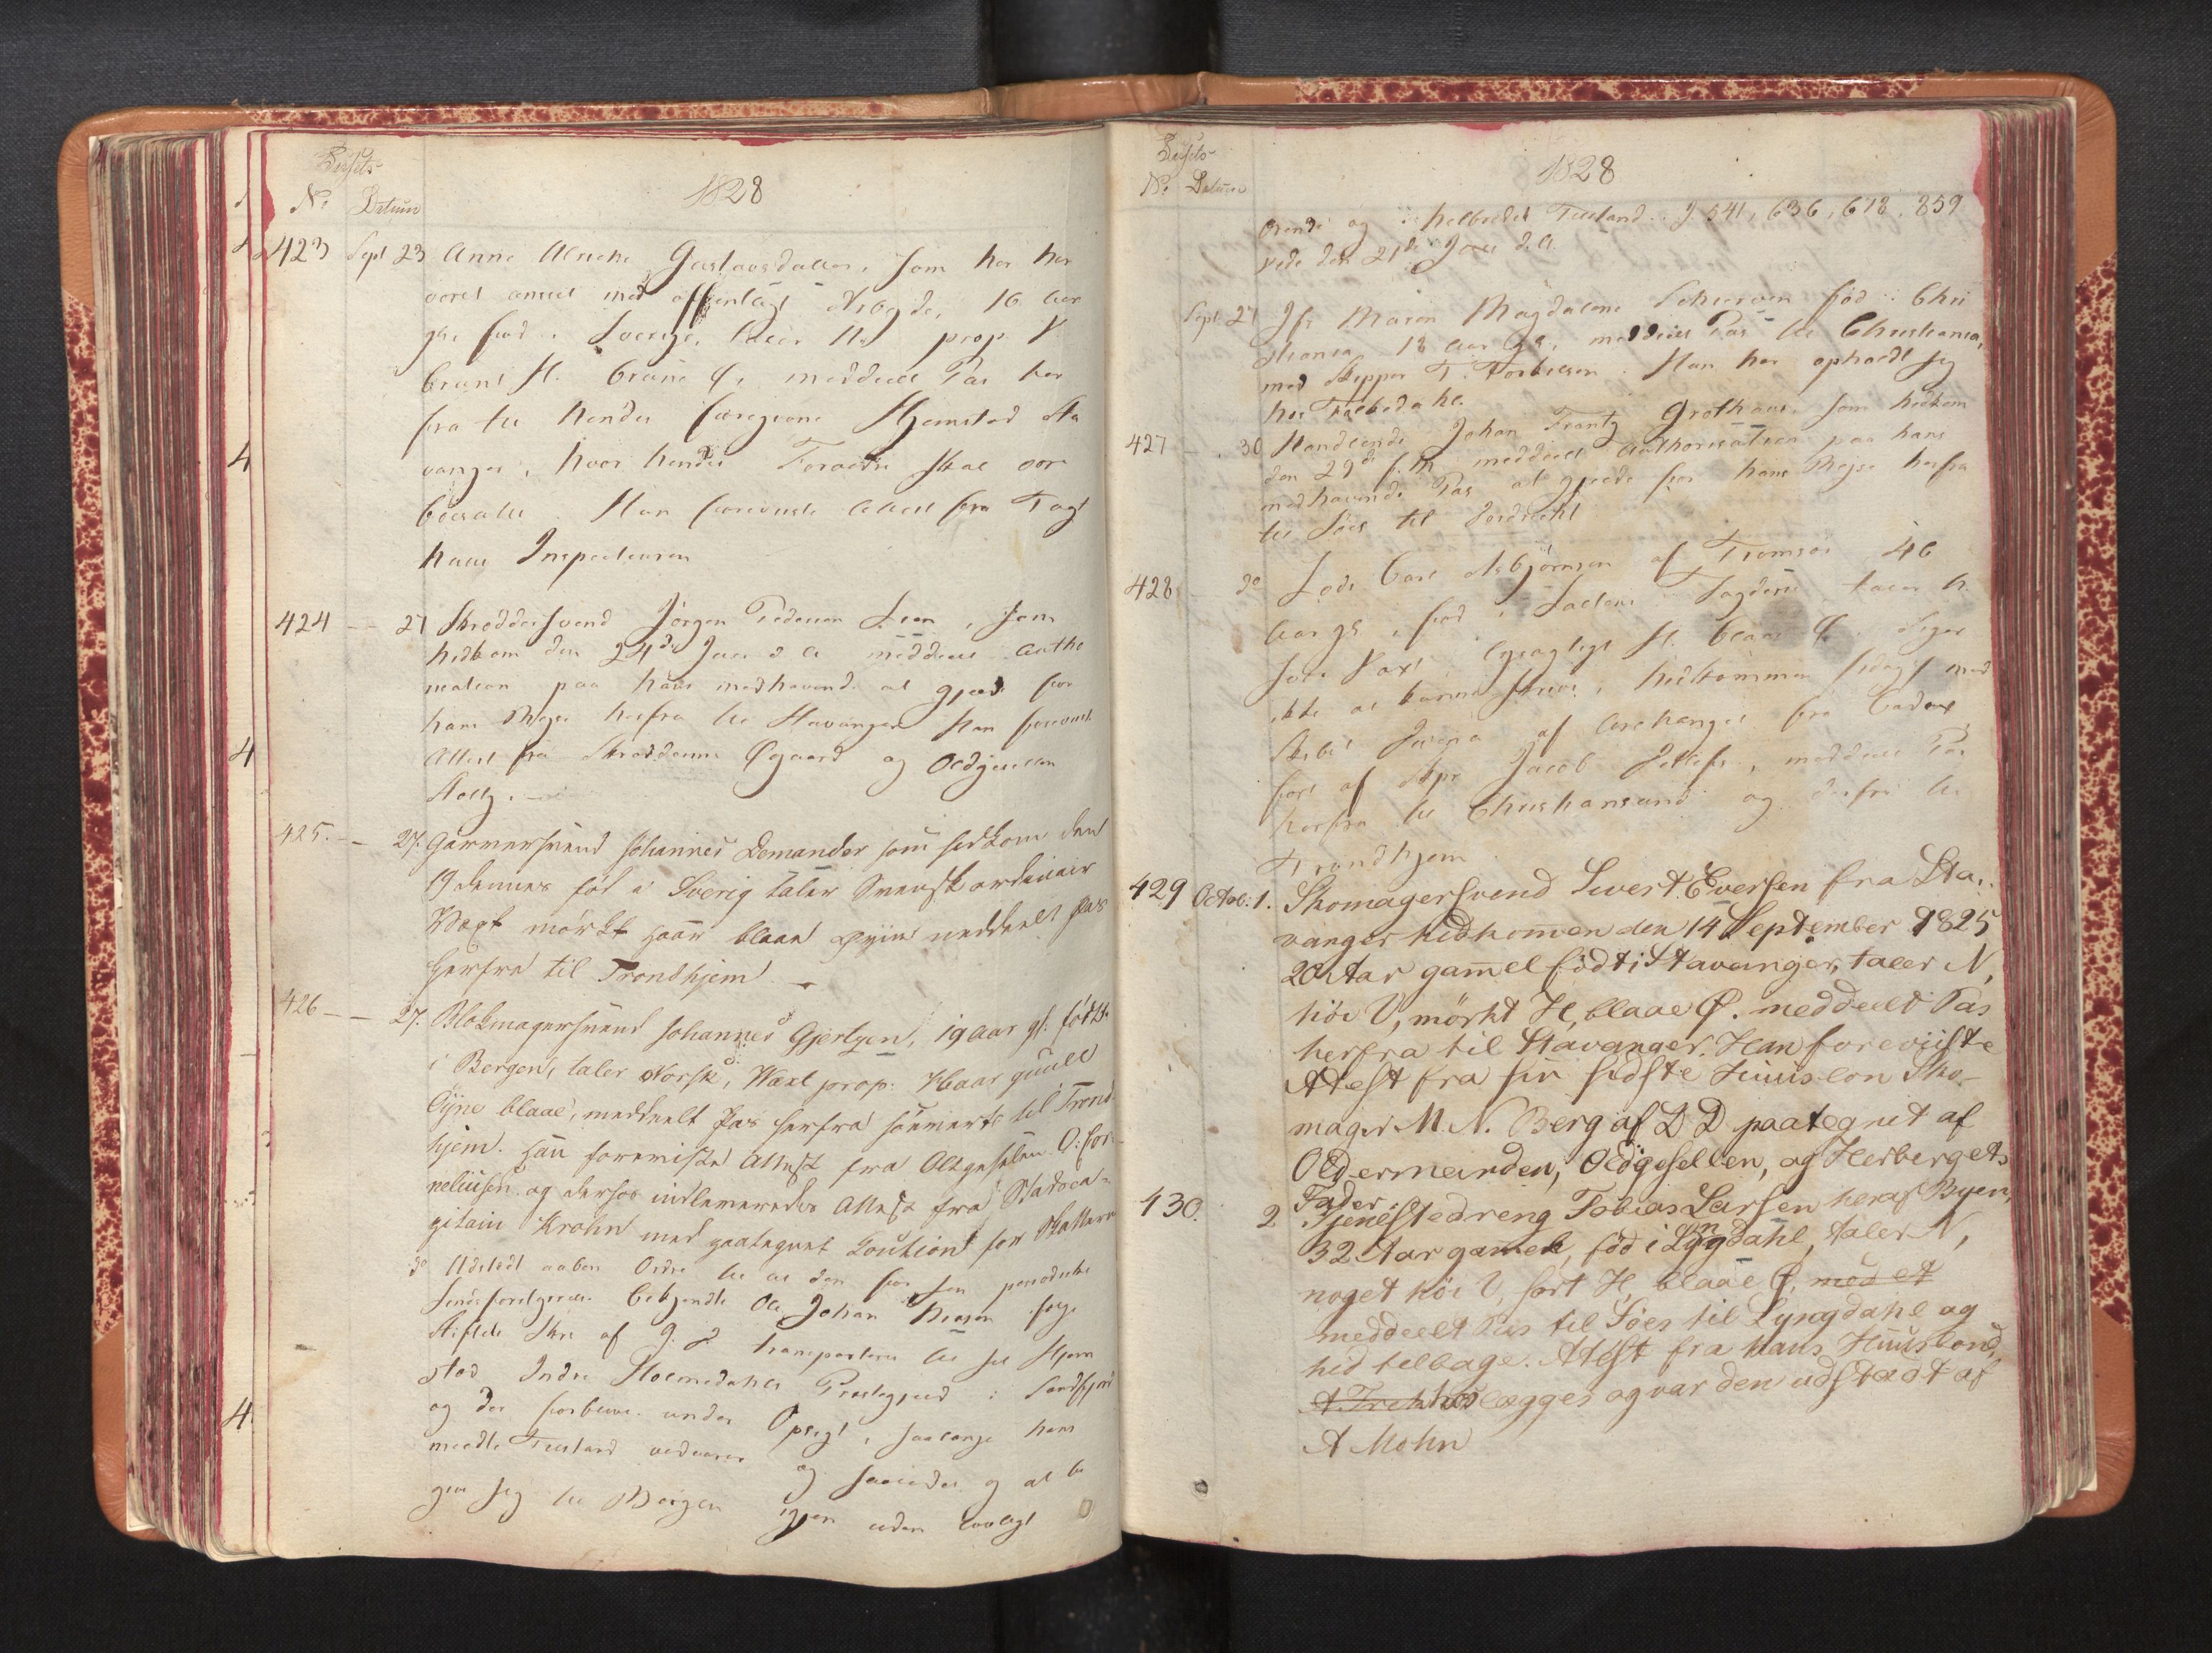 Passets
No Datum
1828
423 Sept 23 Anne Gustavsdatter, som her har
været ansat med offentligt Arbejde, 16 Aar
gl. fød i Sverige, taler N. prop. V.
bruunt H. brune Ø. meddeelt Pas her
fra til hendes foregivne Hjemstad Sta
vanger, hvor hendes Forældre skal være
bosatte. Hun foreviiste Attest fra Tugt
huus Inspecteuren
424 — 27 Skrædersvend Jörgen Pedersen Lien, som
hidkom den 24de Juni d. A. meddeelt Autho
risation paa hans medhavende at gjælde for
hans Rejse herfra til Stavanger. Han foreviist
Attest fra Skræderne Øgaard og Oldgesellen
Stoltz. —
425. — 27. Garversvend Johannes Demander som hidkom den
19 dennes föd i Sverig taler Svensk ordinair
Væxt mörkt Haar blaae Øyne meddeelt Pas
herfra til Trondhjem. —
426 — — 27. Blokmagersvend Johannes Gjertsen, 19 Aar gl. född
i Bergen, taler Norsk, Wæxt prop: Haar guult
Öyne blaae, meddeelt Pas herfra söeverts til Trond
hjem. Han foreviste Attest fra Oldgesellen O: Cor
neliusen og derhos indlemmeredes Attest fra Stadsca-
pitain Krohn med paategnet Caution for Skatterne
do Udstædt aaben Ordre til at den for sin periodiske
Sindsforvirrelse bekjendte Ole Johan Iversen følge
Skr. af 9. d. transporteres til sit Hjem
stad Indre Holmedahls Præstegjeld i Søndfjord
og der forblive under Opsigt, saalænge hans
Tilstand vedvarer og saaledes og at be
give sig til Bergen igjen uden lovligt
Passets
No Datum
1828
Ærende og i helbredet Tilstand. J 541, 636, 618, 859
vide den 21de Juni d. A.
Sept. 27 Jfr. Maren Magdalene Schierven föd i Chri
stiania, 18 Aar gl., meddeelt Pas til Christiania,
med Skipper T. Torkelsen. Hun har opholdt sig
hos
427 — . 30 Handlende Johan Frantz Grothaus, som hidkom
den 29de f. M. meddeelt Authorisation paa hans
medhavende Pas at gjælde for hans Rejse herfra
til Søes til Dordrecht
428 — do Lods Carl Asbjörnsen af Tromsöe 46
Aar gl., fød i Saltens Fogderie taler N.
høi Væxt lysagtigt H. blaae Ø. Siger
ikke at kunne skrive, hidkommen idag med
Skibet af Archangel fra
ført af Skpr Jacob, meddeelt Pas
herfra til Christiansund og derfra til
Trondhjem
429 Octob: 1. Skomagersvend Sivert Eversen fra Sta..
vanger hidkommen den 14 September 1825
20 Aar gammel födt i Stavanger, taler N,
höi V, mörkt H, blaae Ø. meddeelt Pas
herfra til Stavanger. Han foreviiste
Atest fra sin sidste Huusbon Sko-
mager M. N. Berg af D D paategnet af
Oldermanden, Oldgesellen, og Herbergets
Fader.
430. 2 Tjenestedreng Tobias Larsen heraf Byen,
32 Aar gammel, föd i Lyngdahl, taler N,
noget höi V, sort H, blaae Ø, med et
meddeelt Pas til Söes til Lyngdahl og
hid tilbage. Atest fra hans Huusbond,
henlægges og var den udstædt af
A Mohn